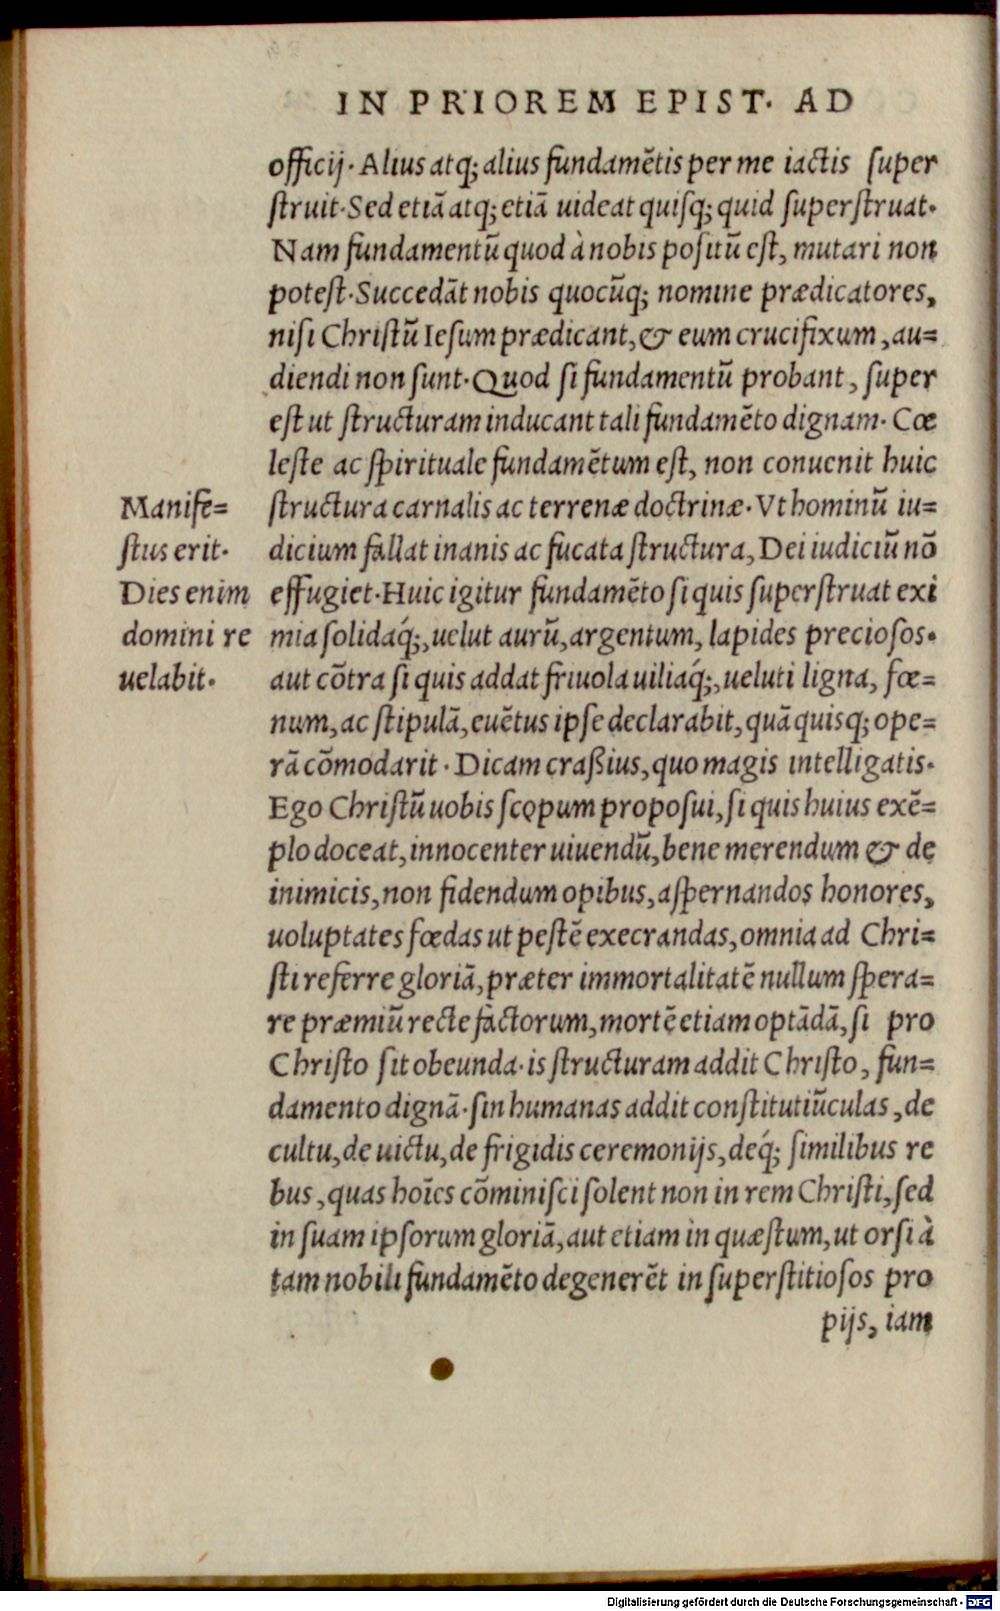 IN PRIOREM EPIST. AD
officij. Alius atq; alius fundamẽtis per me iactis super
struit. Sed etiã atq; etiã uideat quisq; quid superstruat.
Nam fundamentũ quod à nobis positũ est, mutari non
potest. Succedãt nobis quocũq; nomine prædicatores,
nisi Christũ Iesum prædicant, & eum crucifixum, au=
diendi non sunt. Quod si fundamentũ probant, super
est ut structuram inducant tali fundamẽto dignam. Cœ
leste ac spirituale fundamẽtum est, non conuenit huic
structura carnalis ac terrenæ doctrinæ. Vt hominũ iu=
dicium fallat inanis ac fucata structura, Dei iudiciũ nõ
effugiet. Huic igitur fundamẽto si quis superstruat exi
mia solidaq́;, uelut aurũ, argentum, lapides preciosos.
aut cõtra si quis addat friuola uiliaq́;, ueluti ligna, fœ=
num, ac stipulã, euẽtus ipse declarabit, quã quisq; ope=
rã cõmodarit. Dicam craßius, quo magis intelligatis.
Ego Christũ uobis scopum proposui, si quis huius exẽ=
plo doceat, innocenter uiuendũ, bene merendum & de
inimicis, non fidendum opibus, aspernandos honores,
uoluptates fœdas ut pestẽ execrandas, omnia ad Chri=
sti referre gloriã, præter immortalitatẽ nullum spera=
re præmiũ recte factorum, mortẽ etiam optãdã, si pro
Christo sit obeunda. is structuram addit Christo, fun=
damento dignã. sin humanas addit constitutiũculas, de
cultu, de uictu, de frigidis ceremonijs, deq́; similibus re
bus, quas hoĩes cõminisci solent non in rem Christi, sed
in suam ipsorum gloriã, aut etiam in quæstum, ut orsi à
tam nobili fundamẽto degenerẽt in superstitiosos pro
pijs, iam
Manife=
stus erit.
Dies enim
domini re
uelabit.
Digitalisierung gefördert durch die Deutsche Forschungsgemeinschaft - DFG